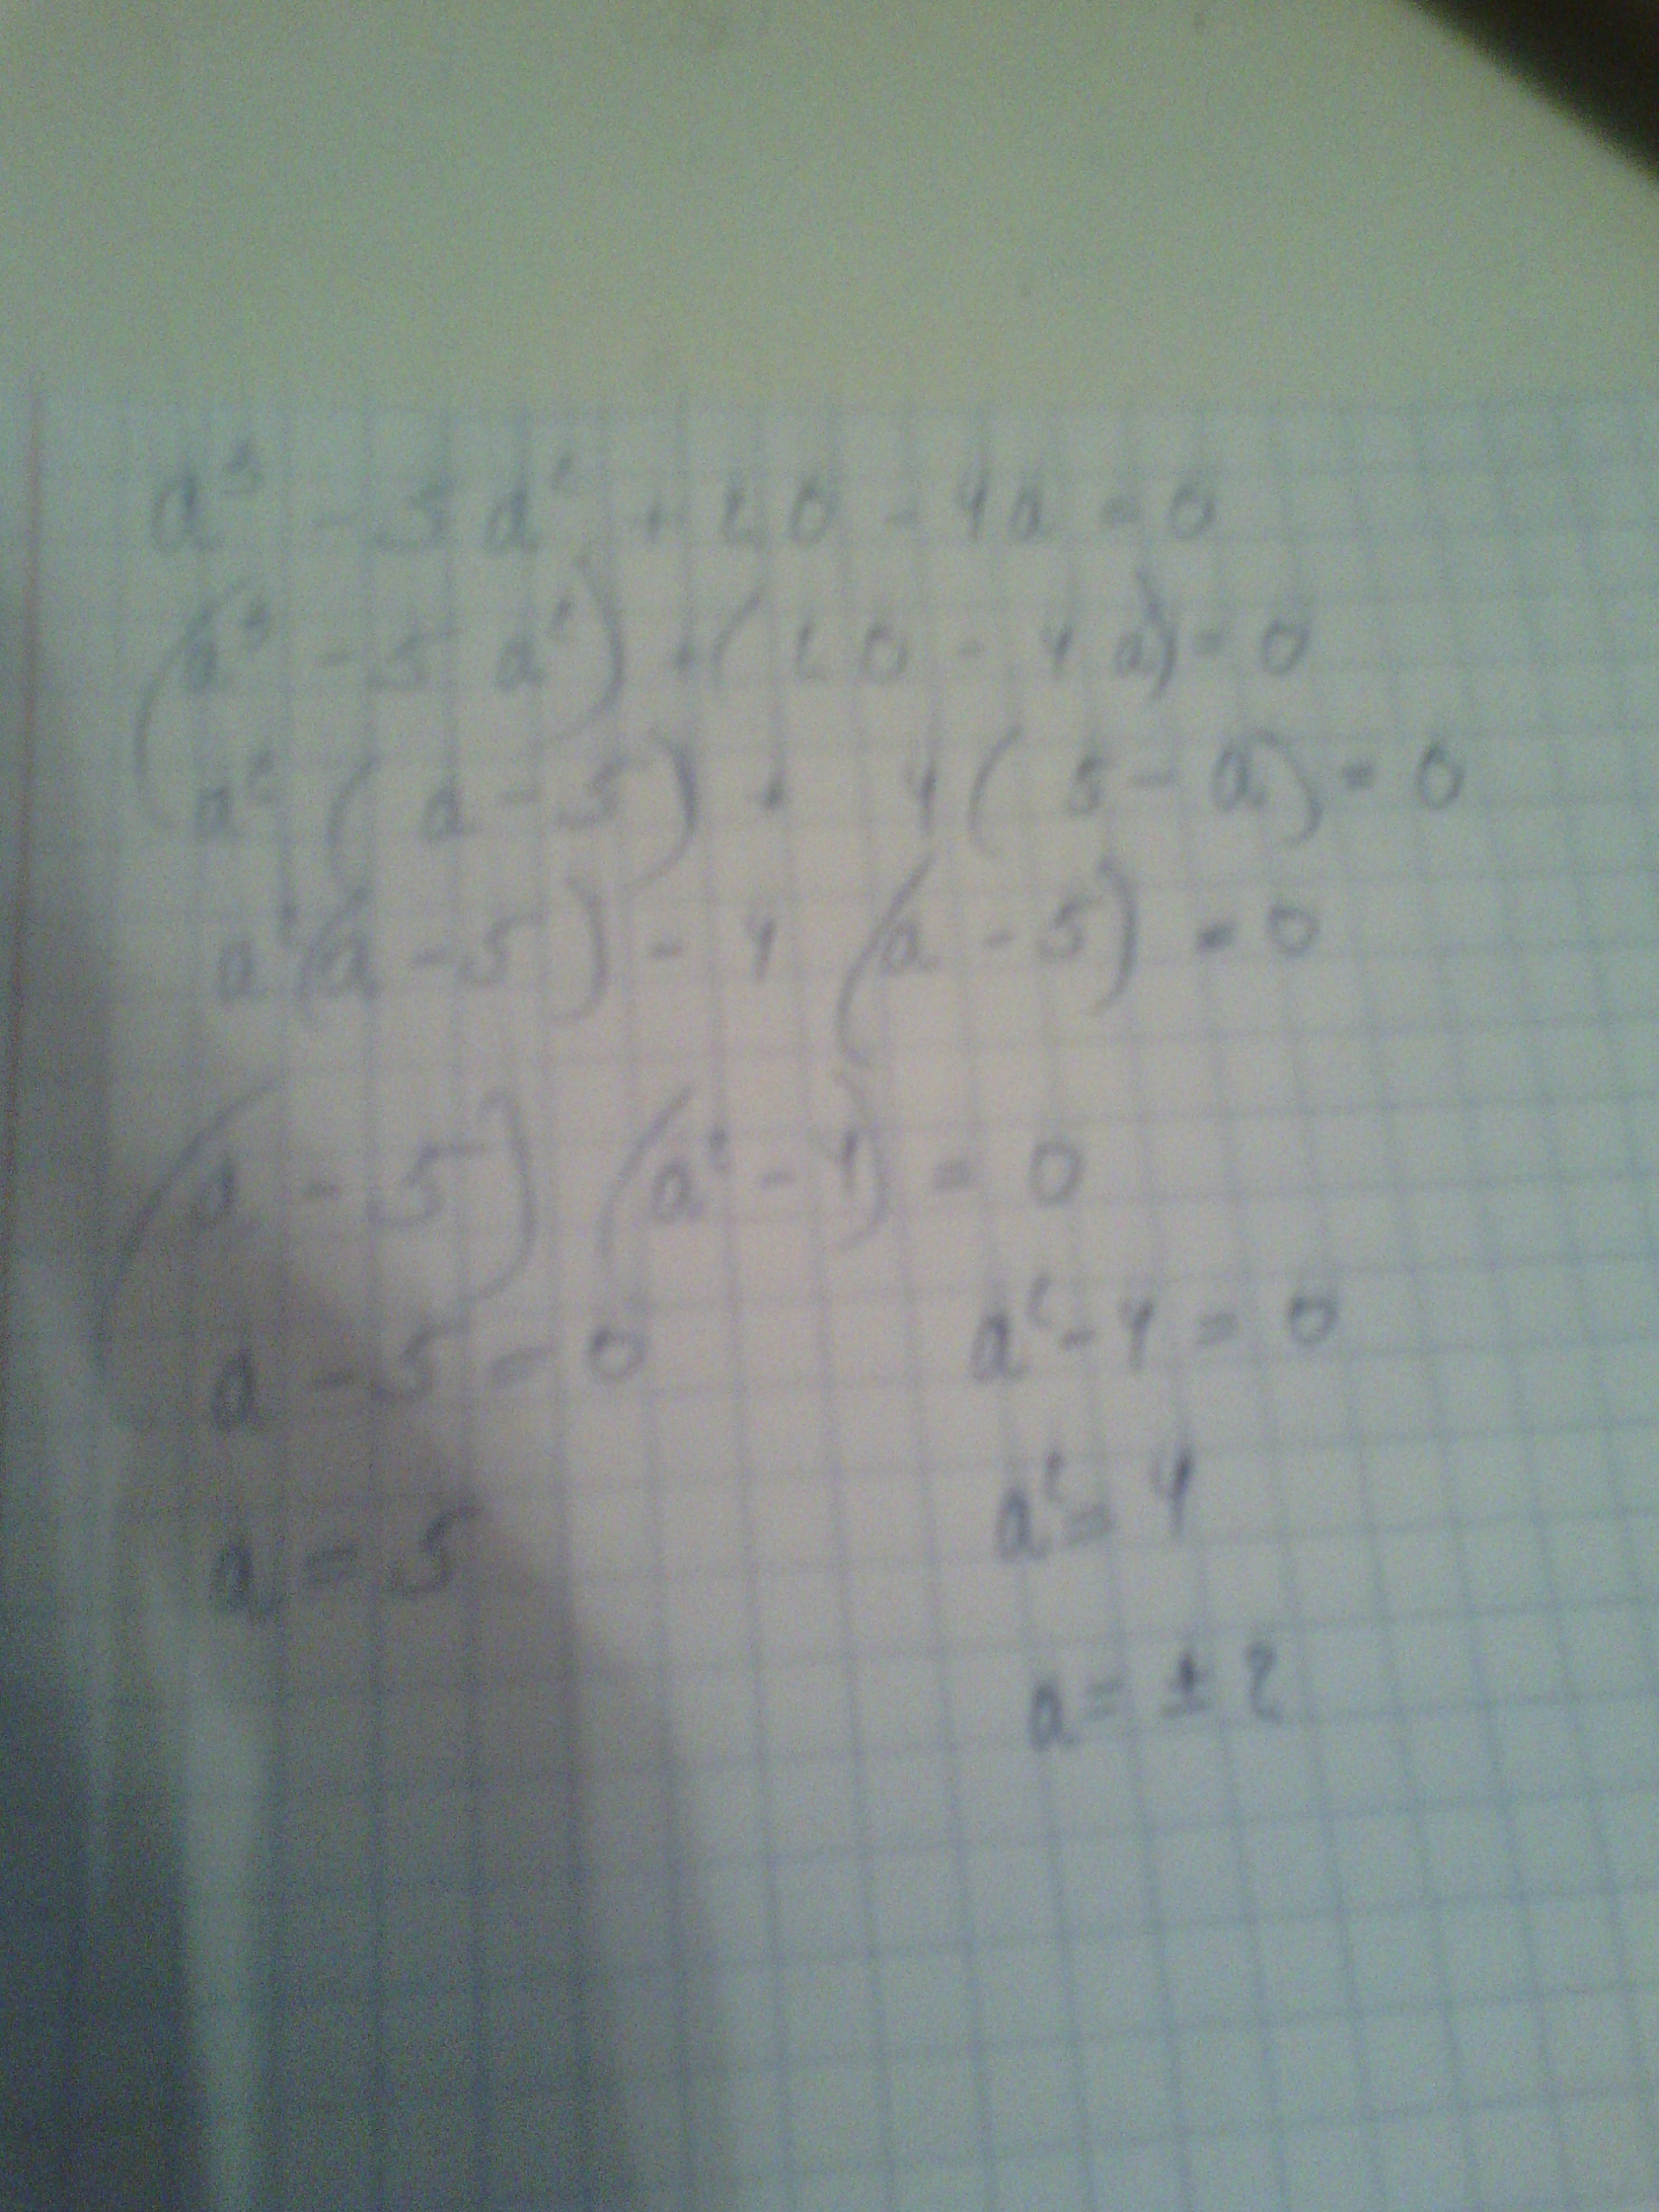 a³ - 5a² + 20 - 4a = 0
(a³ - 5a²) + (20 - 4a) = 0
a² (a - 5) + 4(5 - a) = 0
a²(a - 5) - 4 (a - 5) = 0
(a - 5) (a² - 4) = 0
a - 5 = 0 a² - 4 = 0
a² = 4
a = 5
a = ± 2